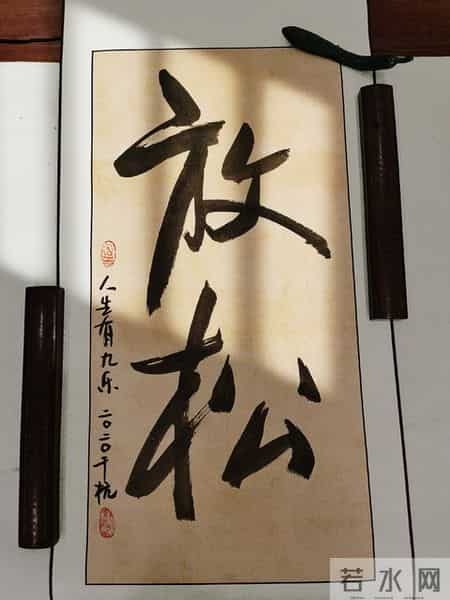 放松
人生有九乐 二〇二〇于杭
若水网